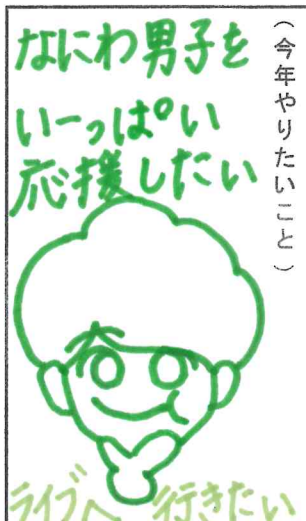 (今年やりたいこと)
なにわ男子を
いーっぱい
応援したい
ライブへ 行きたい